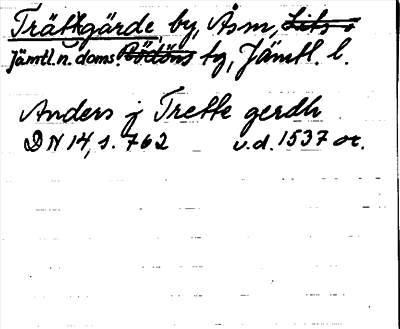 Trättgärde, by, Åsm, Lits o
Jämtl. n. doms. Rödöns tg, Jämtl. l.
Anders j Trette gerdh
DN 14, s. 762 v.d. 1537 or.